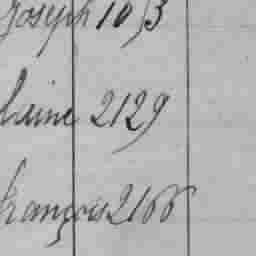 Joseph 1053
laine 2129
françois 2166